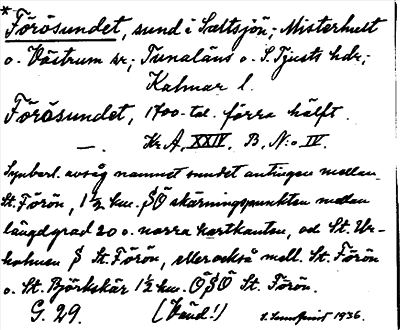 * Förösundet, sund i Saltsjön; Misterhult
o. Västrum sr; Tunaläns o. S. Tjusts hdr;
Kalmar l.
Förösundet, 1700-tal. förra hälft.
—. Kr. A. XXIV. B. N:o IV.
Synbarl. avsåg namnet sundet antingen mellan
St. Förön, 1 ½ km. SÖ skärningspunkten mellan
längdgrad 20 o. norra kartkanten, och St. Ur-
holmen S St. Förön, eller också mell. St. Förön
o. St. Björkskär 1 ½ km. ÖSÖ St. Förön.
G. 29. (Vänd!) 1936.